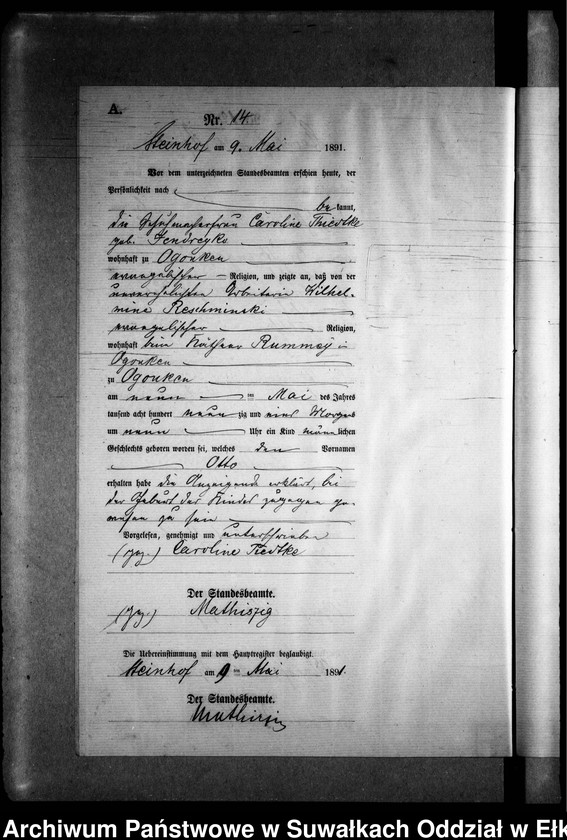 A.
Nr. 14
Steinhof am 9. Mai 1891.
Vor dem unterzeichneten Standesbeamten erschien heute, der
Persönlichkeit nach
be kannt,
die Caroline Thiedtke
geb. Jendreyko
wohnhaft zu Ogonken
evangelischer Religion, und zeigte an, daß von der
unverehelichten Arbeiterin Wilhel-
mine Reschminski
evangelischer Religion,
wohnhaft beim Käthner Rummey in
Ogonken
zu Ogonken
am neun ten Mai des Jahres
tausend acht hundert neun zig und eins Morgens
um neun Uhr ein Kind männ lichen
Geschlechts geboren worden sei, welches den Vornamen
Otto
erhalten habe die Anzeigende erklärt, bei
der Geburt des Kindes zugegen ge-
wesen zu sein
Vorgelesen, genehmigt und unterschrieben
(gez.) Caroline Tiedtke
Der Standesbeamte.
(gez.) Mathiszig
Die Uebereinstimmung mit dem Hauptregister beglaubigt.
Steinhof am 9 ten Mai 1891.
Der Standesbeamte.
Mathiszig
Archiwum Państwowe w Suwałkach Oddział w Ełk